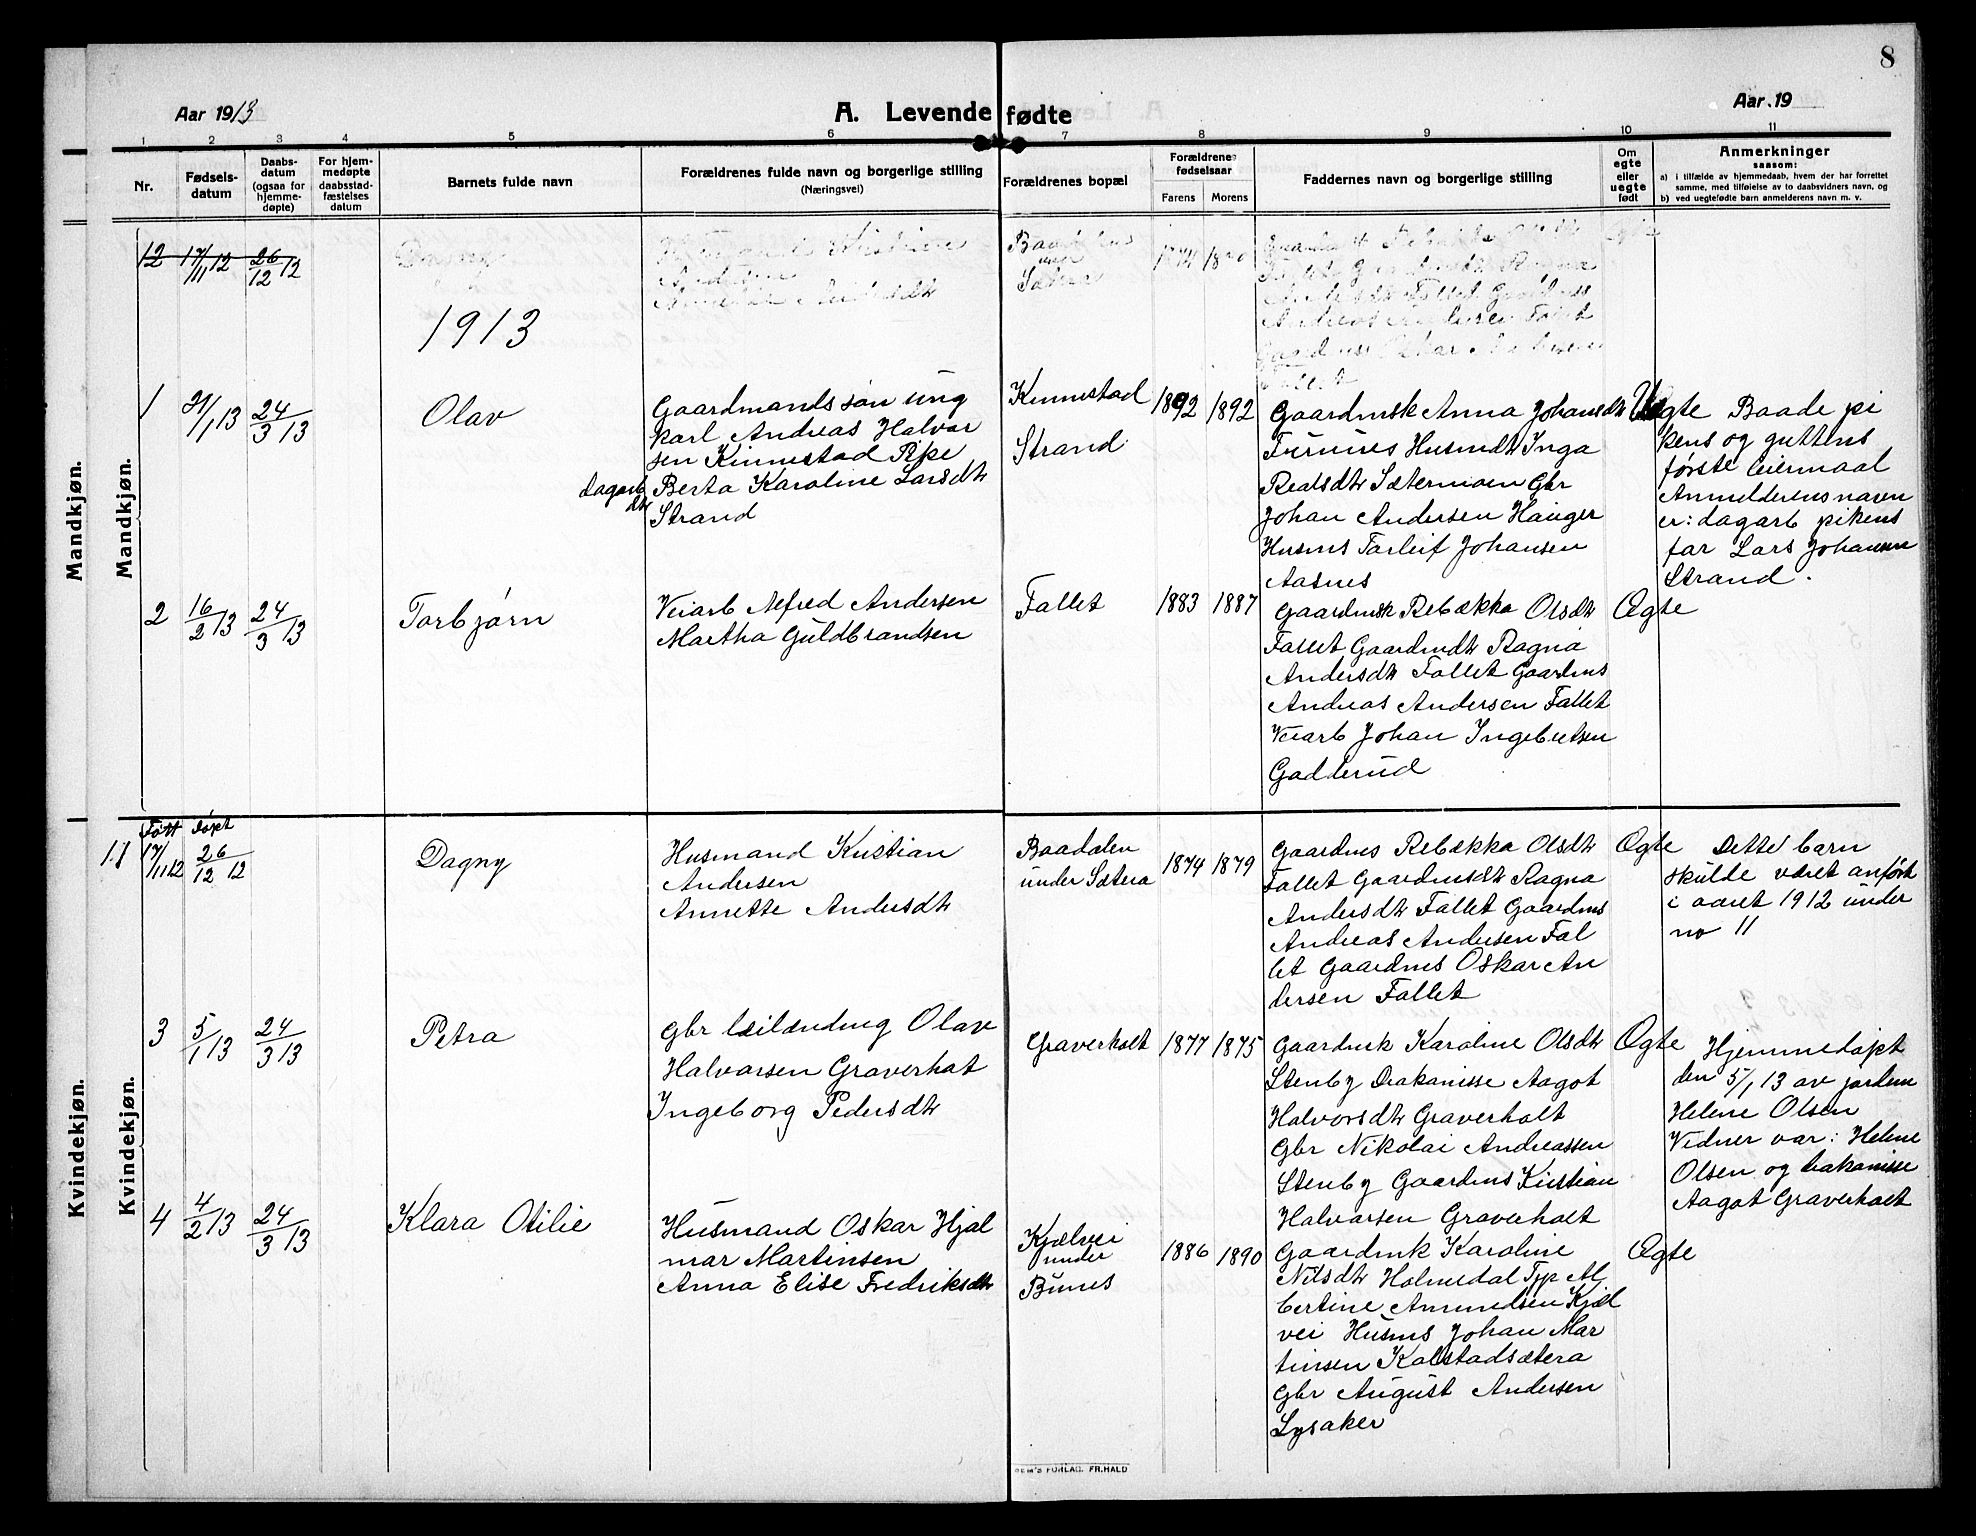 8
Aar 1913
A. Levende fødte
Aar 19
1 2 3 4 5 6 7 8 9 10 11
Nr.
Fødsels-
datum
Daabs-
datum
(ogsaa for
hjemme-
døpte)
For hjem-
medøpte
daabsstad-
fæstelses
datum
Barnets fulde navn
Forældrenes fulde navn og borgerlige stilling
(Næringsvei)
Forældrenes bopæl
Forældrenes
fødselsaar
Farens Morens
Faddernes navn og borgerlige stilling
Om
egte
eller
uegte
født
Anmerkninger
saasom:
a) i tilfælde av hjemmedaab, hvem der har forrettet
samme, med tilføielse av to daabsvidners navn, og
b) ved uegtefødte barn anmelderens navn m. v.
Mandkjøn.
Mandkjøn.
12 17/11 12 26/12 12
1913
1
21/1 13
24/3 13
Olav
Gaardmandssøn ung
karl Andreas Halvor
sen Kinnestad Pike
dagarb
dtr
Berta Karoline Larsdtr
Strand
Kinnestad
Strand
1892 1892
Gaardmsk Anna Johansdtr
Furunes Husmdtr Inga
Realsdtr Sætermoen Gbr
Johan Andersen Hauger
Husms Torleif Johansen
Aasnes
Uegte
Baade pi
kens og guttens
første leiermaal
Anmelderens navn
er: dagarb pikens
far Lars Johansen
Strand.
2
16/2 13
24/3 13
Torbjørn
Veiarb Alfred Andersen
Martha Guldbrandsen
Fallet
1883 1887
Gaardmsk Rebækka Olsdtr
Fallet Gaardmdtr Ragna
Andersdtr Fallet Gaardms
Andreas Andersen Fallet
Veiarb Johan Ingebretsen
Gadderud
Ægte
Kvindekjøn.
Kvindekjøn.
Født Døpt
11
17/11 12
26/12 12
Dagny
Husmand Kristian
Andersen
Annette Andersdtr
Baadalen
under Sætera
1874 1879
Gaardms Rebækka Olsdtr
Fallet Gaardmsdtr Ragna
Andersdtr Fallet Gaardms
Andreas Andersen Fal
let Gaardms Oskar An
dersen Fallet
Ægte
Dette barn
skulde været anført
i aaret 1912 under
no 11
3
5/1 13
24/3 13
Petra
Gbr leilænding Olav
Halvorsen Graverholt
Ingeborg Pedersdtr
Graverholt
1877 1875
Gaardmk Karoline Olsdtr
Stenby Diakonisse Aagot
Halvorsdtr Graverholt
Gbr Nikolai Andreassen
Stenby Gaardms Kristian
Halvorsen Graverholt
Ægte
Hjemmedøpt
den 5/1 13 av jordem
Helene Olsen
Vidner var: Helene
Olsen og diakonisse
Aagot Graverholt
4
4/2 13
24/3 13
Klara Otilie
Husmand Oskar Hjal
mar Martinsen
Anna Elise Fredriksdtr
Kjølvei
under
Bunes
1886 1890
Gaardmk Karoline
Nilsdtr Holmedal Tjp Al
bertine Amundsen Kjøl
vei Husms Johan Mar
tinsen Kolstadsætera
Gbr August Andersen
Lysaker
Ægte
SEM'S FORLAG. FR.HALD